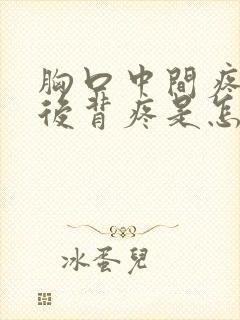 胸口中間疼
後背疼是怎
冰蛋兒